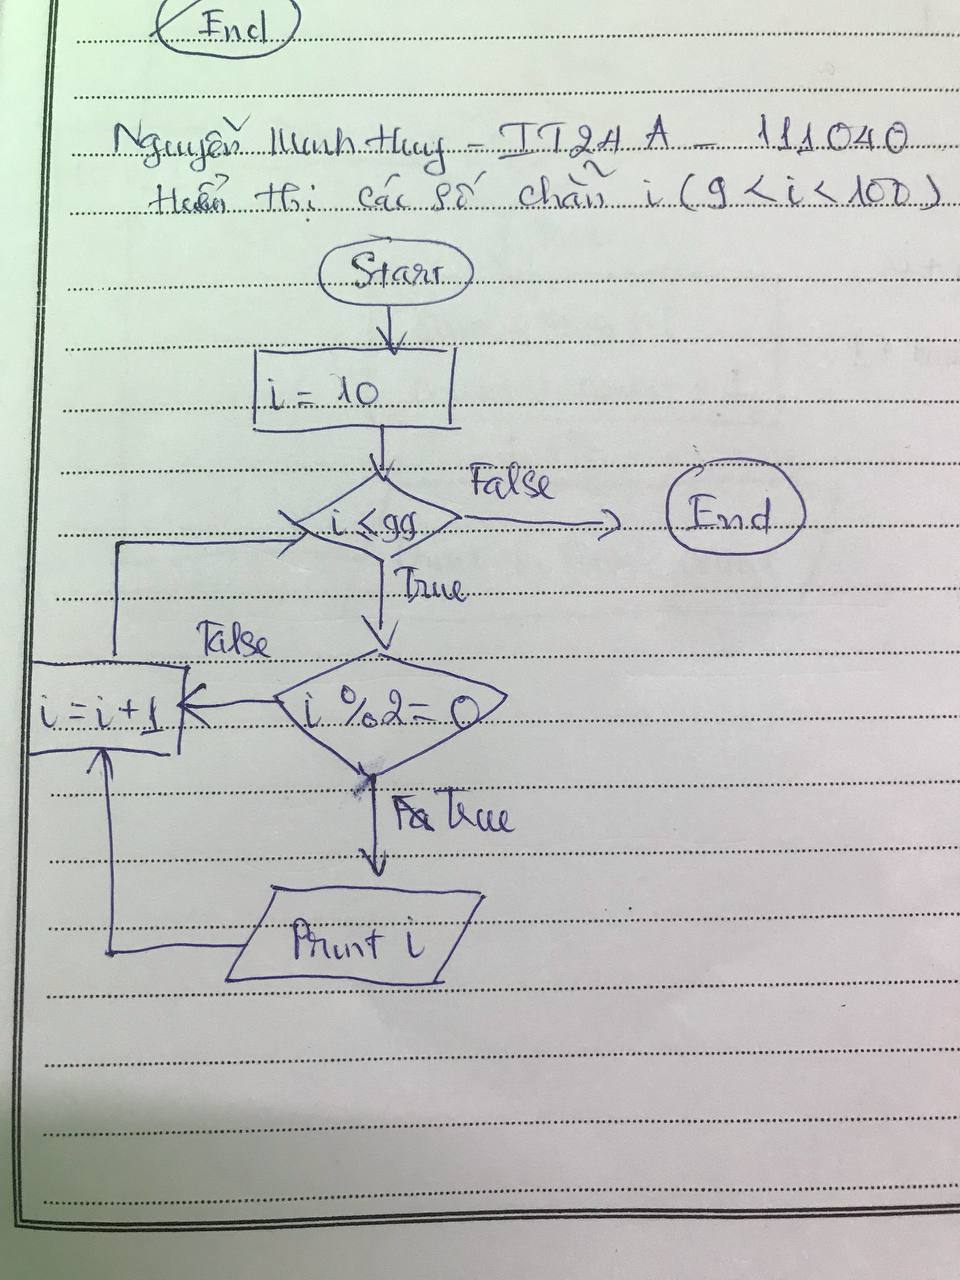 End
Nguyễn Minh Huy - IT24A - 111040
Hiển thị các số chẵn i (9 < i < 100)
Start
i = 10
False
i < 99
End
True
False
i = i + 1
i % 2 = 0
True
Print i